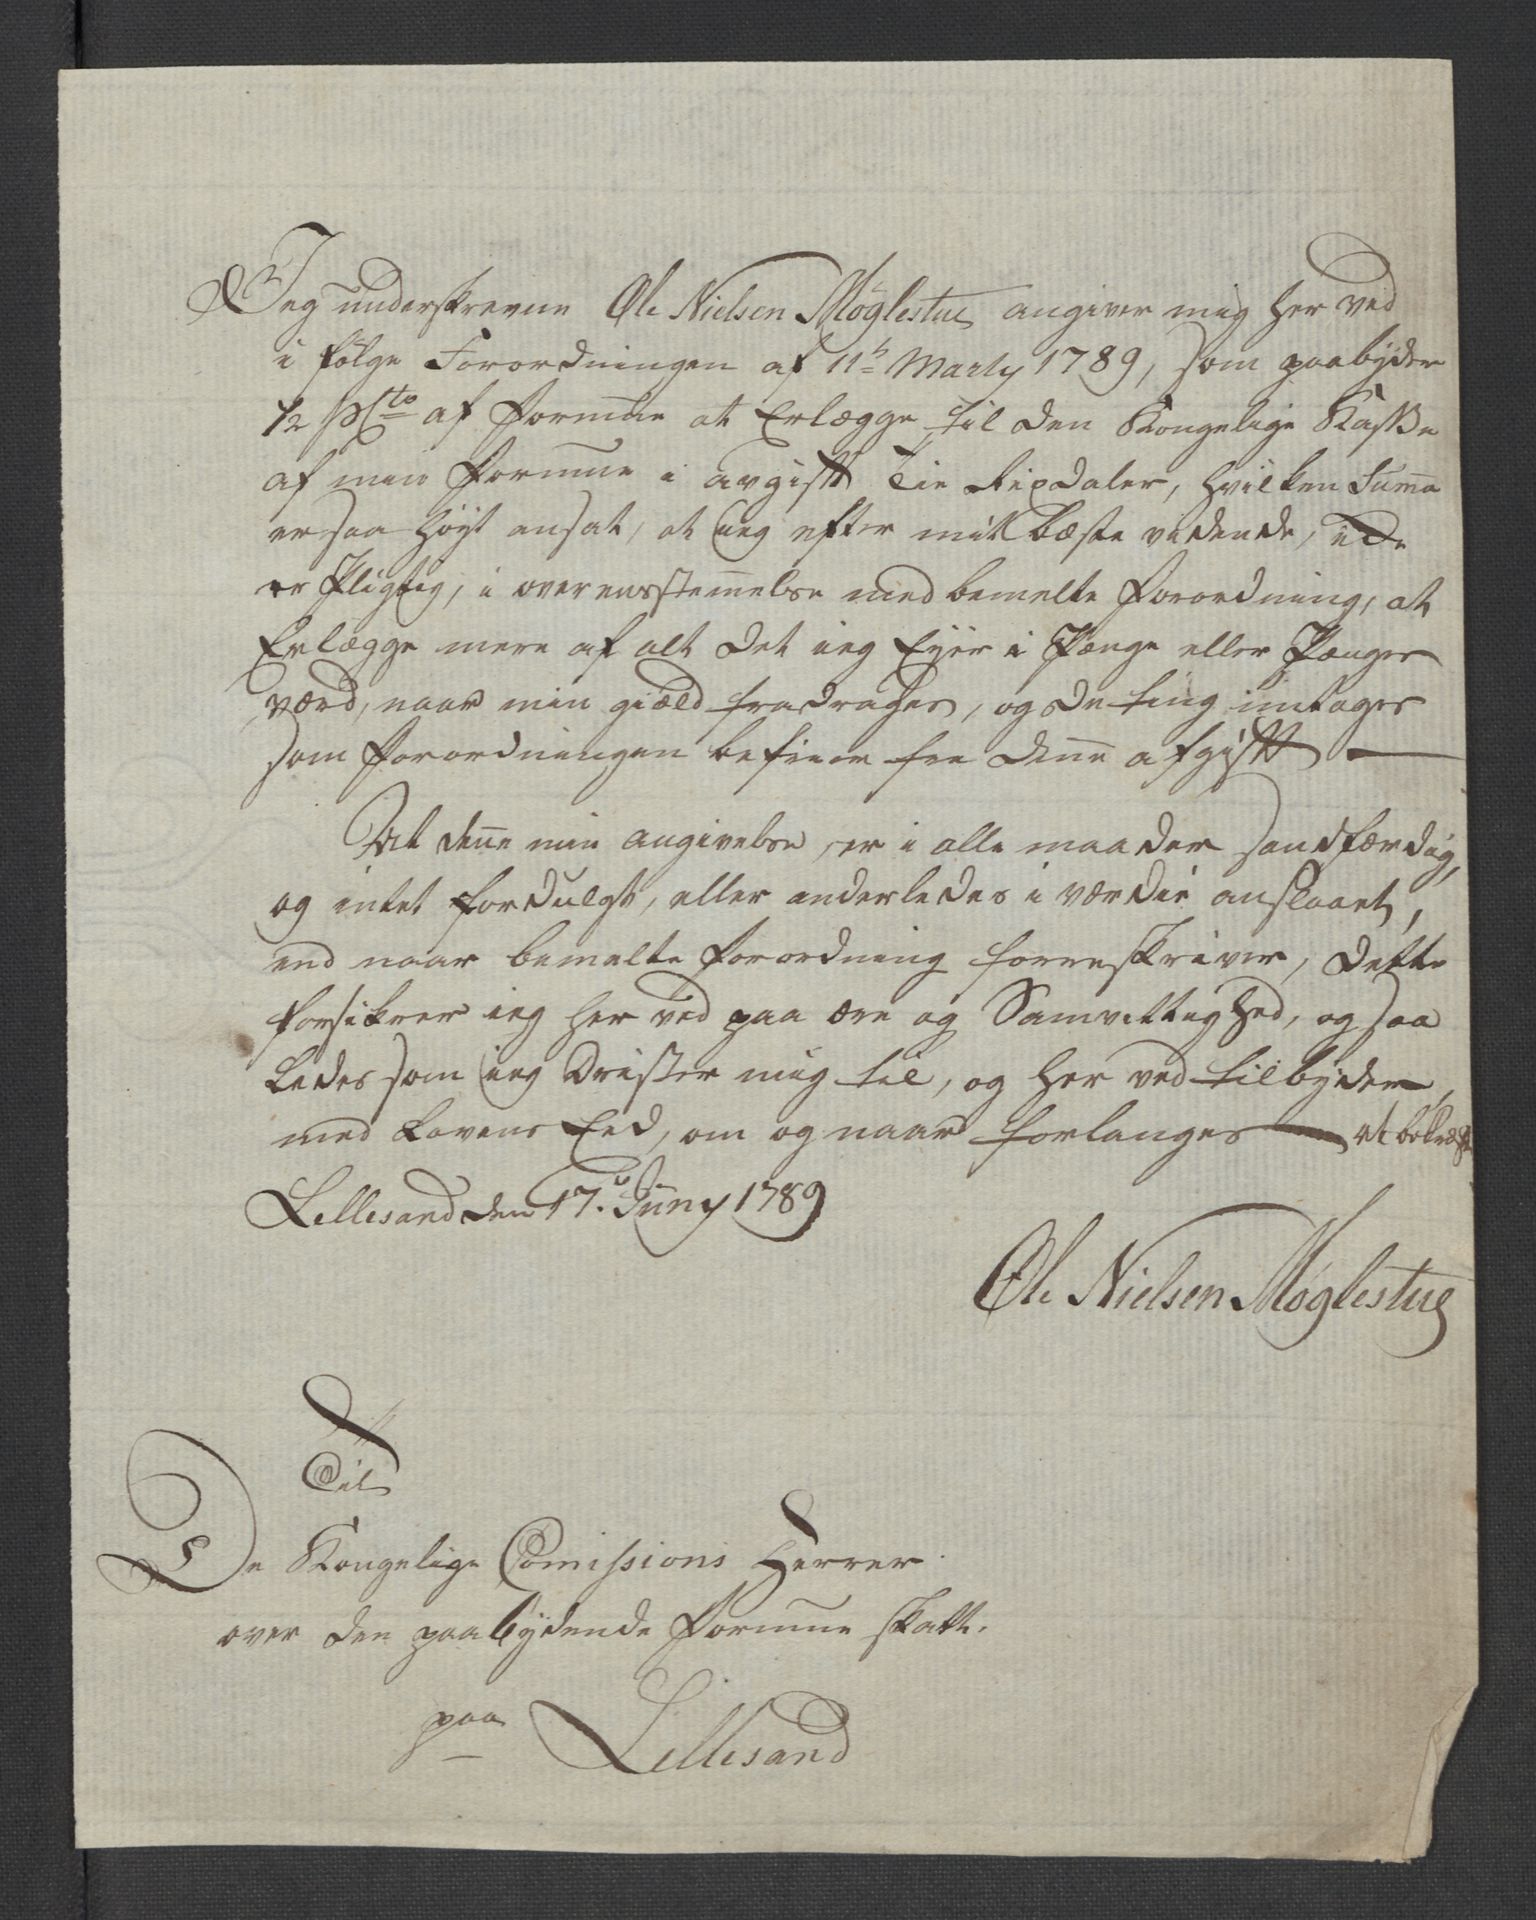 Jeg underskrevne Ole Nielsen Møglestue angiver mig her ved
i følge Forordningen af 11te Marty 1789, som paabyder
1/2 pCto af formue at Erlægge til den Kongelige Kasse
af min formue i avgift Tie Rixdaler, hvilken Summa
er saa høyt ansat, at ieg efter mit bæste vidende, icke
er Pligtig, i overensstemmelse med bemelte forordning, at
Erlægge mere af alt det ieg Eyer i Penge eller Penges
værd, naar min giæld fradrages, og de ting
som forordningen befrier fra denne afgift
At denne min angivelse, er i alle maader sandfærdig,
og intet fordulgt, eller anderledes i værdie anslaaet,
end naar bemelte forordning foreskriver, dette
forsikrer ieg her ved paa ære og Samvittighed, og saa
ledes som ieg drister mig til, og her ved tilbyder
med Lovens Eed, om og naar forlanges at bekræfte
Lillesand den 17. Juny 1789
Ole Nielsen Møglestue
Til
De Kongelige Comissions Herrer
over den paabydende formue skatt.
paa Lillesand